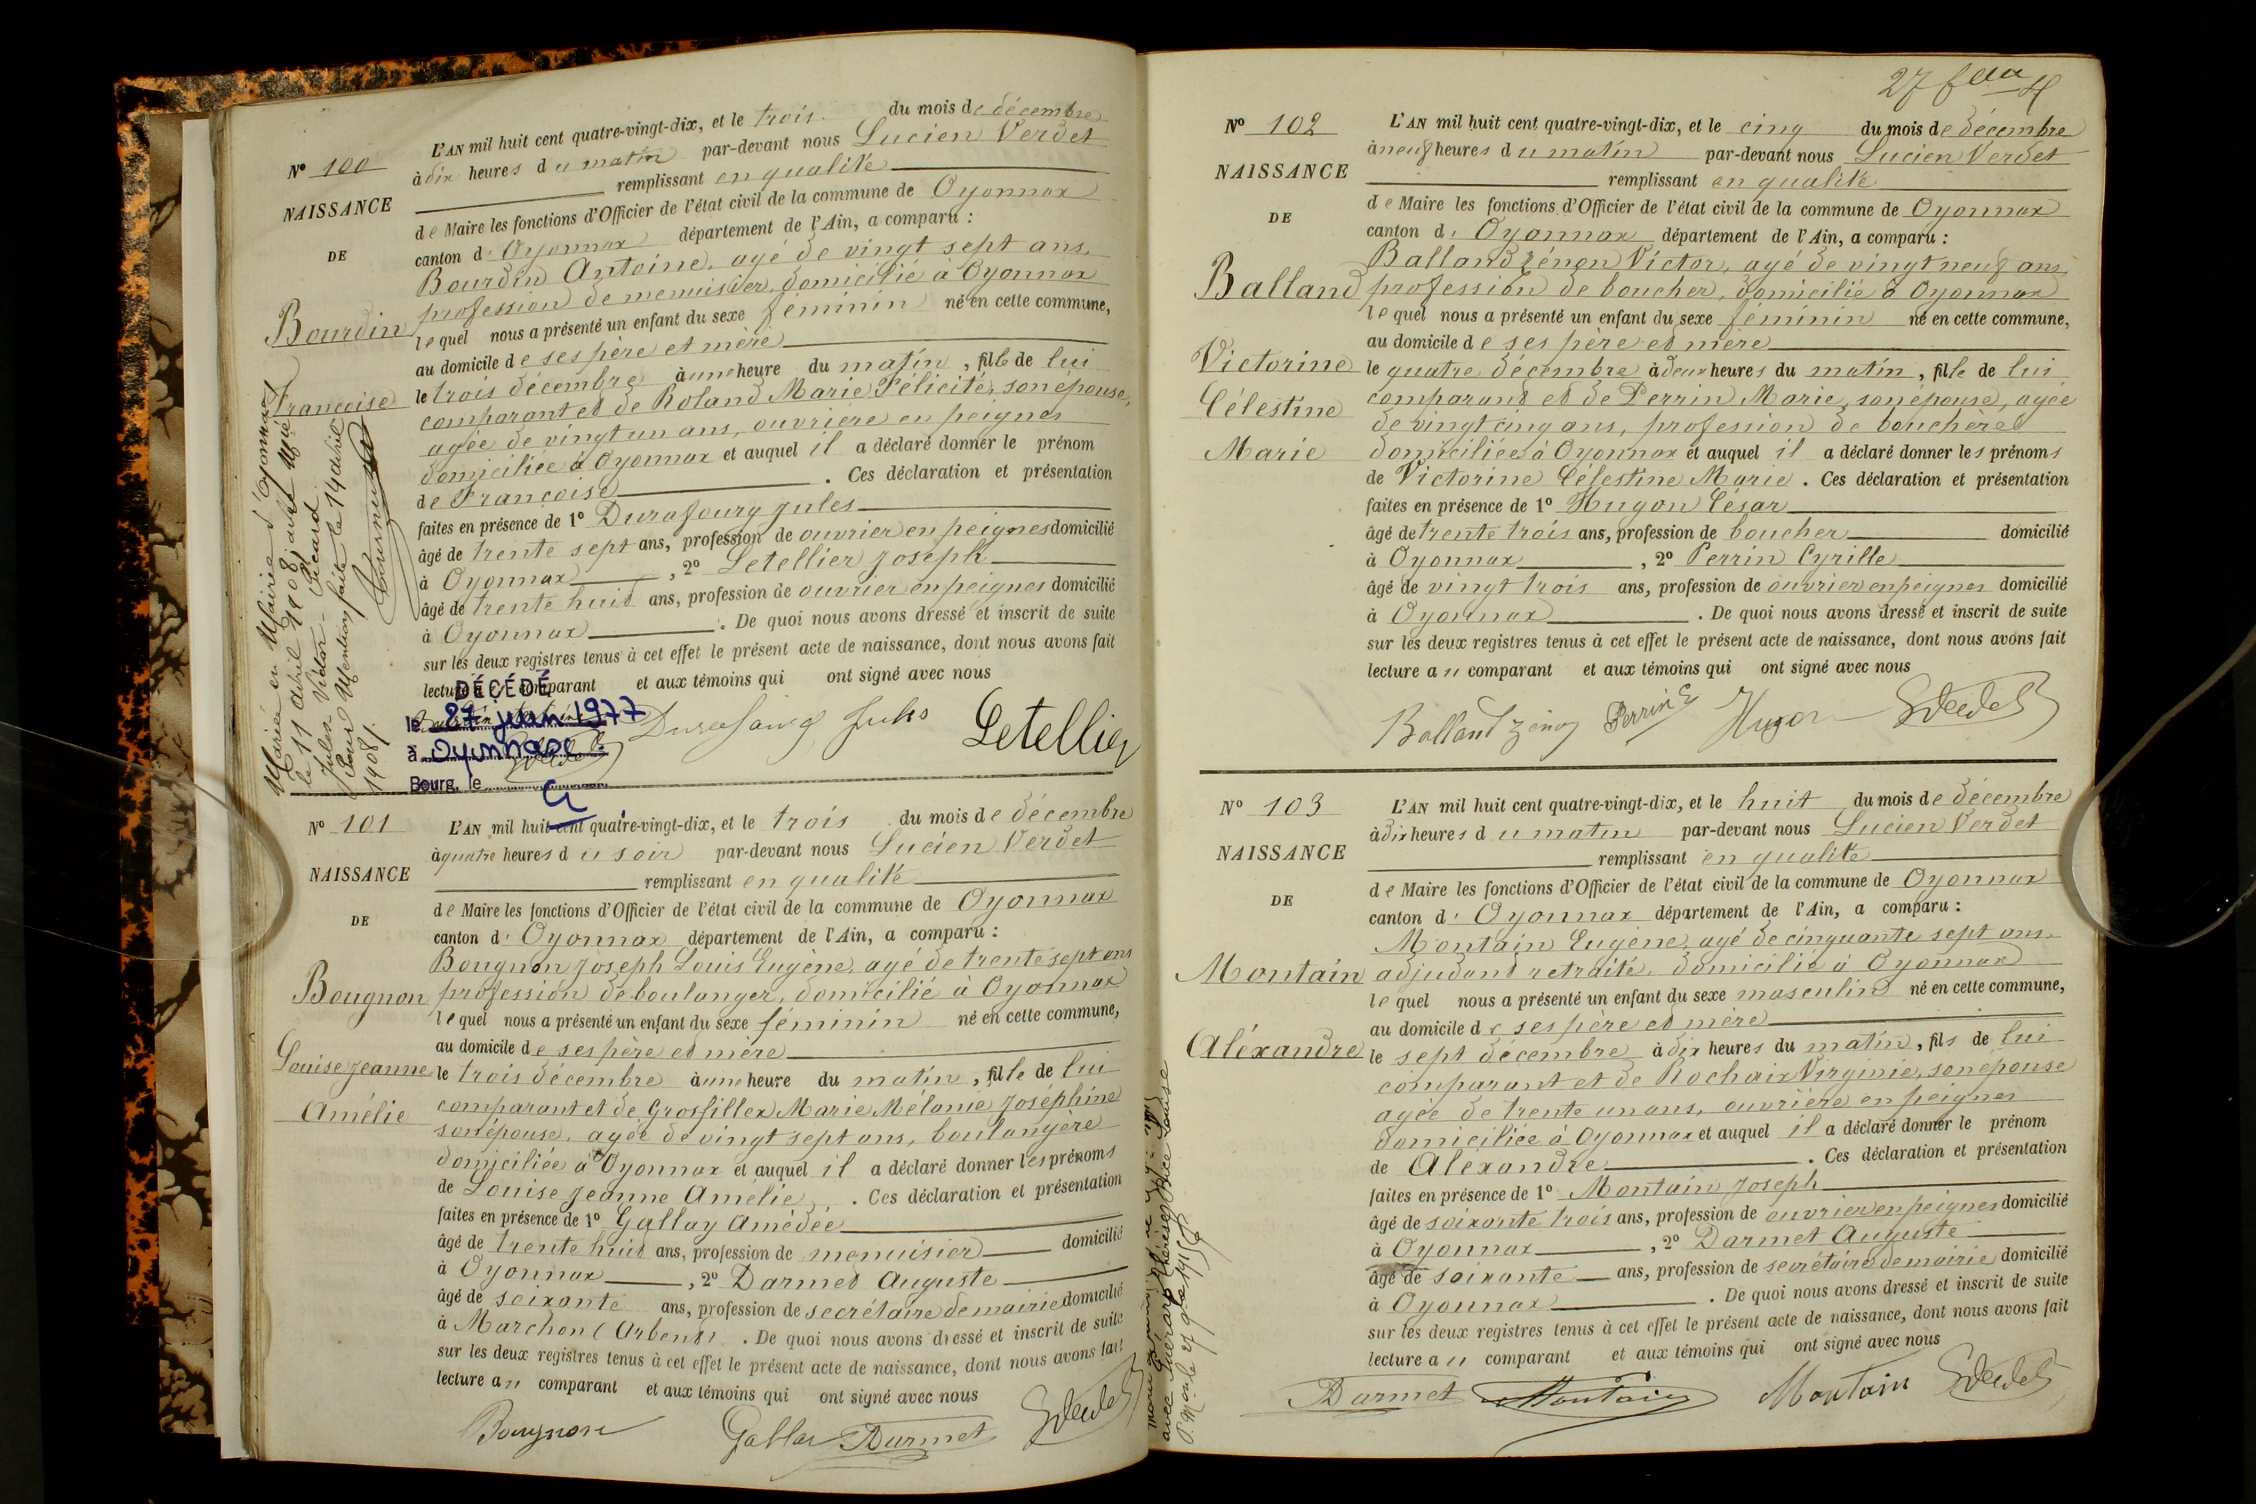 Nº 100
NAISSANCE
DE
Bourdin
Françoise
L'AN mil huit cent quatre-vingt-dix, et le trois du mois de décembre
à dix heures du matin par-devant nous Lucien Verdet
remplissant en qualité
de Maire les fonctions d'Officier de l'état civil de la commune de Oyonnax
canton d' Oyonnax département de l'Ain, a comparu :
Bourdin Antoine, agé de vingt sept ans,
profession de menuisier, domicilié à Oyonnax
lequel nous a présenté un enfant du sexe féminin né en cette commune,
au domicile de ses père et mère
le trois décembre à une heure du matin, fille de lui
comparant et de Roland Marie Félicité, son épouse,
agée de vingt un ans, ouvriere en peignes
domiciliée à Oyonnax et auquel il a déclaré donner le prénom
de Françoise . Ces déclaration et présentation
faites en présence de 1º Durafourg Jules
âgé de trente sept ans, profession de ouvrier en peignes domicilié
à Oyonnax , 2º Letellier Joseph
âgé de trente huit ans, profession de ouvrier en peignes domicilié
à Oyonnax . De quoi nous avons dressé et inscrit de suite
sur les deux registres tenus à cet effet le présent acte de naissance, dont nous avons fait
lecture au comparant et aux témoins qui ont signé avec nous
Durafourg Jules Letellier
DÉCÉDÉ
le 27 juin 1977
à Oyonnax
Bourg, le
Mariée en Mairie d'Oyonnax
le 11 avril 1908, avec
Jules Victor Picard.
Pour Mention faite le 14 avril
1908.
Nº 101
NAISSANCE
DE
Bougnon
Louise Jeanne
Amélie
L'AN mil huit cent quatre-vingt-dix, et le trois du mois de décembre
à quatre heures du soir par-devant nous Lucien Verdet
remplissant en qualité
de Maire les fonctions d'Officier de l'état civil de la commune de Oyonnax
canton d' Oyonnax département de l'Ain, a comparu :
Bougnon Joseph Louis Eugène, agé de trente sept ans
profession de boulanger, domicilié à Oyonnax
lequel nous a présenté un enfant du sexe féminin né en cette commune,
au domicile de ses père et mère
le trois décembre à une heure du matin, fille de lui
comparant et de Grosfillex Marie Mélanie Joséphine
son épouse, agée de vingt sept ans, boulangère
domiciliée à Oyonnax et auquel il a déclaré donner les prénoms
de Louise Jeanne Amélie . Ces déclaration et présentation
faites en présence de 1º Gallay Amédée
âgé de trente huit ans, profession de menuisier domicilié
à Oyonnax , 2º Darmet Auguste
âgé de soixante ans, profession de secrétaire de mairie domicilié
à Marchon (Arbent) . De quoi nous avons dressé et inscrit de suite
sur les deux registres tenus à cet effet le présent acte de naissance, dont nous avons fait
lecture au comparant et aux témoins qui ont signé avec nous
Bougnon Gallay Darmet
27
Nº 102
NAISSANCE
DE
Balland
Victorine
Célestine
Marie
L'AN mil huit cent quatre-vingt-dix, et le cinq du mois de décembre
à neuf heures du matin par-devant nous Lucien Verdet
remplissant en qualité
de Maire les fonctions d'Officier de l'état civil de la commune de Oyonnax
canton d' Oyonnax département de l'Ain, a comparu :
Balland Zénon Victor, agé de vingt neuf ans
profession de boucher, domicilié à Oyonnax
lequel nous a présenté un enfant du sexe féminin né en cette commune,
au domicile de ses père et mère
le quatre décembre à deux heures du matin, fille de lui
comparant et de Perrin Marie, son épouse, agée
de vingt cinq ans, profession de bouchère
domiciliée à Oyonnax et auquel il a déclaré donner les prénoms
de Victorine Célestine Marie . Ces déclaration et présentation
faites en présence de 1º Hugon César
âgé de trente trois ans, profession de boucher domicilié
à Oyonnax , 2º Perrin Cyrille
âgé de vingt trois ans, profession de ouvrier en peignes domicilié
à Oyonnax . De quoi nous avons dressé et inscrit de suite
sur les deux registres tenus à cet effet le présent acte de naissance, dont nous avons fait
lecture au comparant et aux témoins qui ont signé avec nous
Balland Zénon Perrin C Hugon
Nº 103
NAISSANCE
DE
Montain
Aléxandre
L'AN mil huit cent quatre-vingt-dix, et le huit du mois de décembre
à dix heures du matin par-devant nous Lucien Verdet
remplissant en qualité
de Maire les fonctions d'Officier de l'état civil de la commune de Oyonnax
canton d' Oyonnax département de l'Ain, a comparu :
Montain Eugène, agé de cinquante sept ans,
adjudant retraité, domicilié à Oyonnax
lequel nous a présenté un enfant du sexe masculin né en cette commune,
au domicile de ses père et mère
le sept décembre à dix heures du matin, fils de lui
comparant et de Rochaix Virginie, son épouse
agée de trente un ans, ouvrière en peignes
domiciliée à Oyonnax et auquel il a déclaré donner le prénom
de Aléxandre . Ces déclaration et présentation
faites en présence de 1º Montain Joseph
âgé de soixante trois ans, profession de ouvrier en peignes domicilié
à Oyonnax , 2º Darmet Auguste
âgé de soixante ans, profession de secrétaire de mairie domicilié
à Oyonnax . De quoi nous avons dressé et inscrit de suite
sur les deux registres tenus à cet effet le présent acte de naissance, dont nous avons fait
lecture au comparant et aux témoins qui ont signé avec nous
Darmet Montain Montain